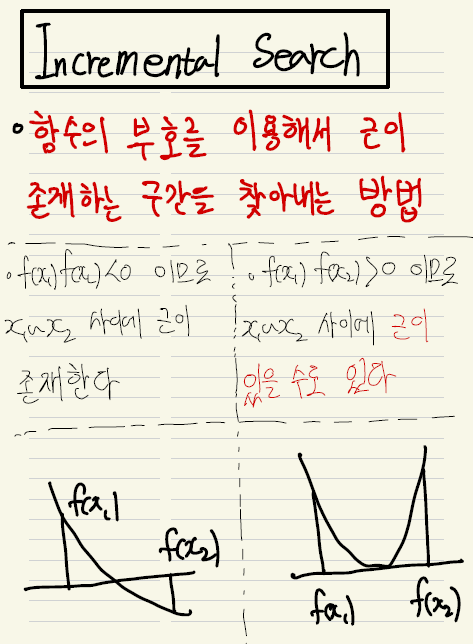 Incremental Search
• 함수의 부호를 이용해서 근이
존재하는 구간을 찾아내는 방법
• f(x₁)f(x₂)<0 이므로
x₁~x₂ 사이에 근이
존재한다
• f(x₁) f(x₂)>0 이므로
x₁~x₂ 사이에 근이
있을 수도 있다
f(x₁)
f(x₂)
f(x₁)
f(x₂)